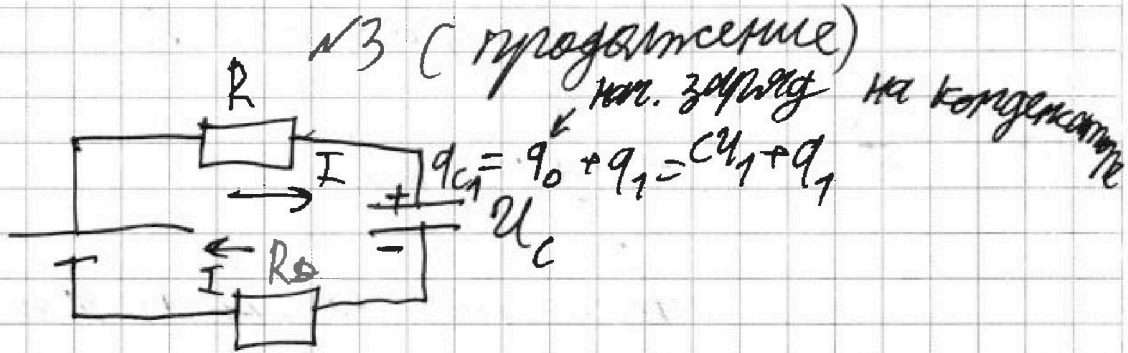 №3 (продолжение)
нач. заряд на конденсаторе
R
I
q_{c1} = q_0 + q_1 = CU_1 + q_1
+
-
U_c
I
R